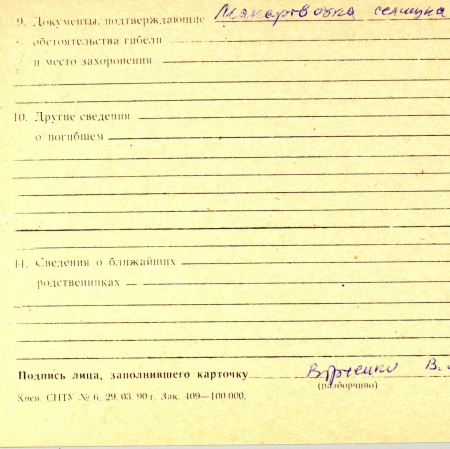 9. Документы, подтверждающие
обстоятельства гибели
и место захоронения
10. Другие сведения
о погибшем
11. Сведения о ближайших
родственниках
Подпись лица, заполнившего карточку В.
(разборчиво)
Киев. СПТУ № 6. 29. 03. 90 г. Зак. 409—100 000.